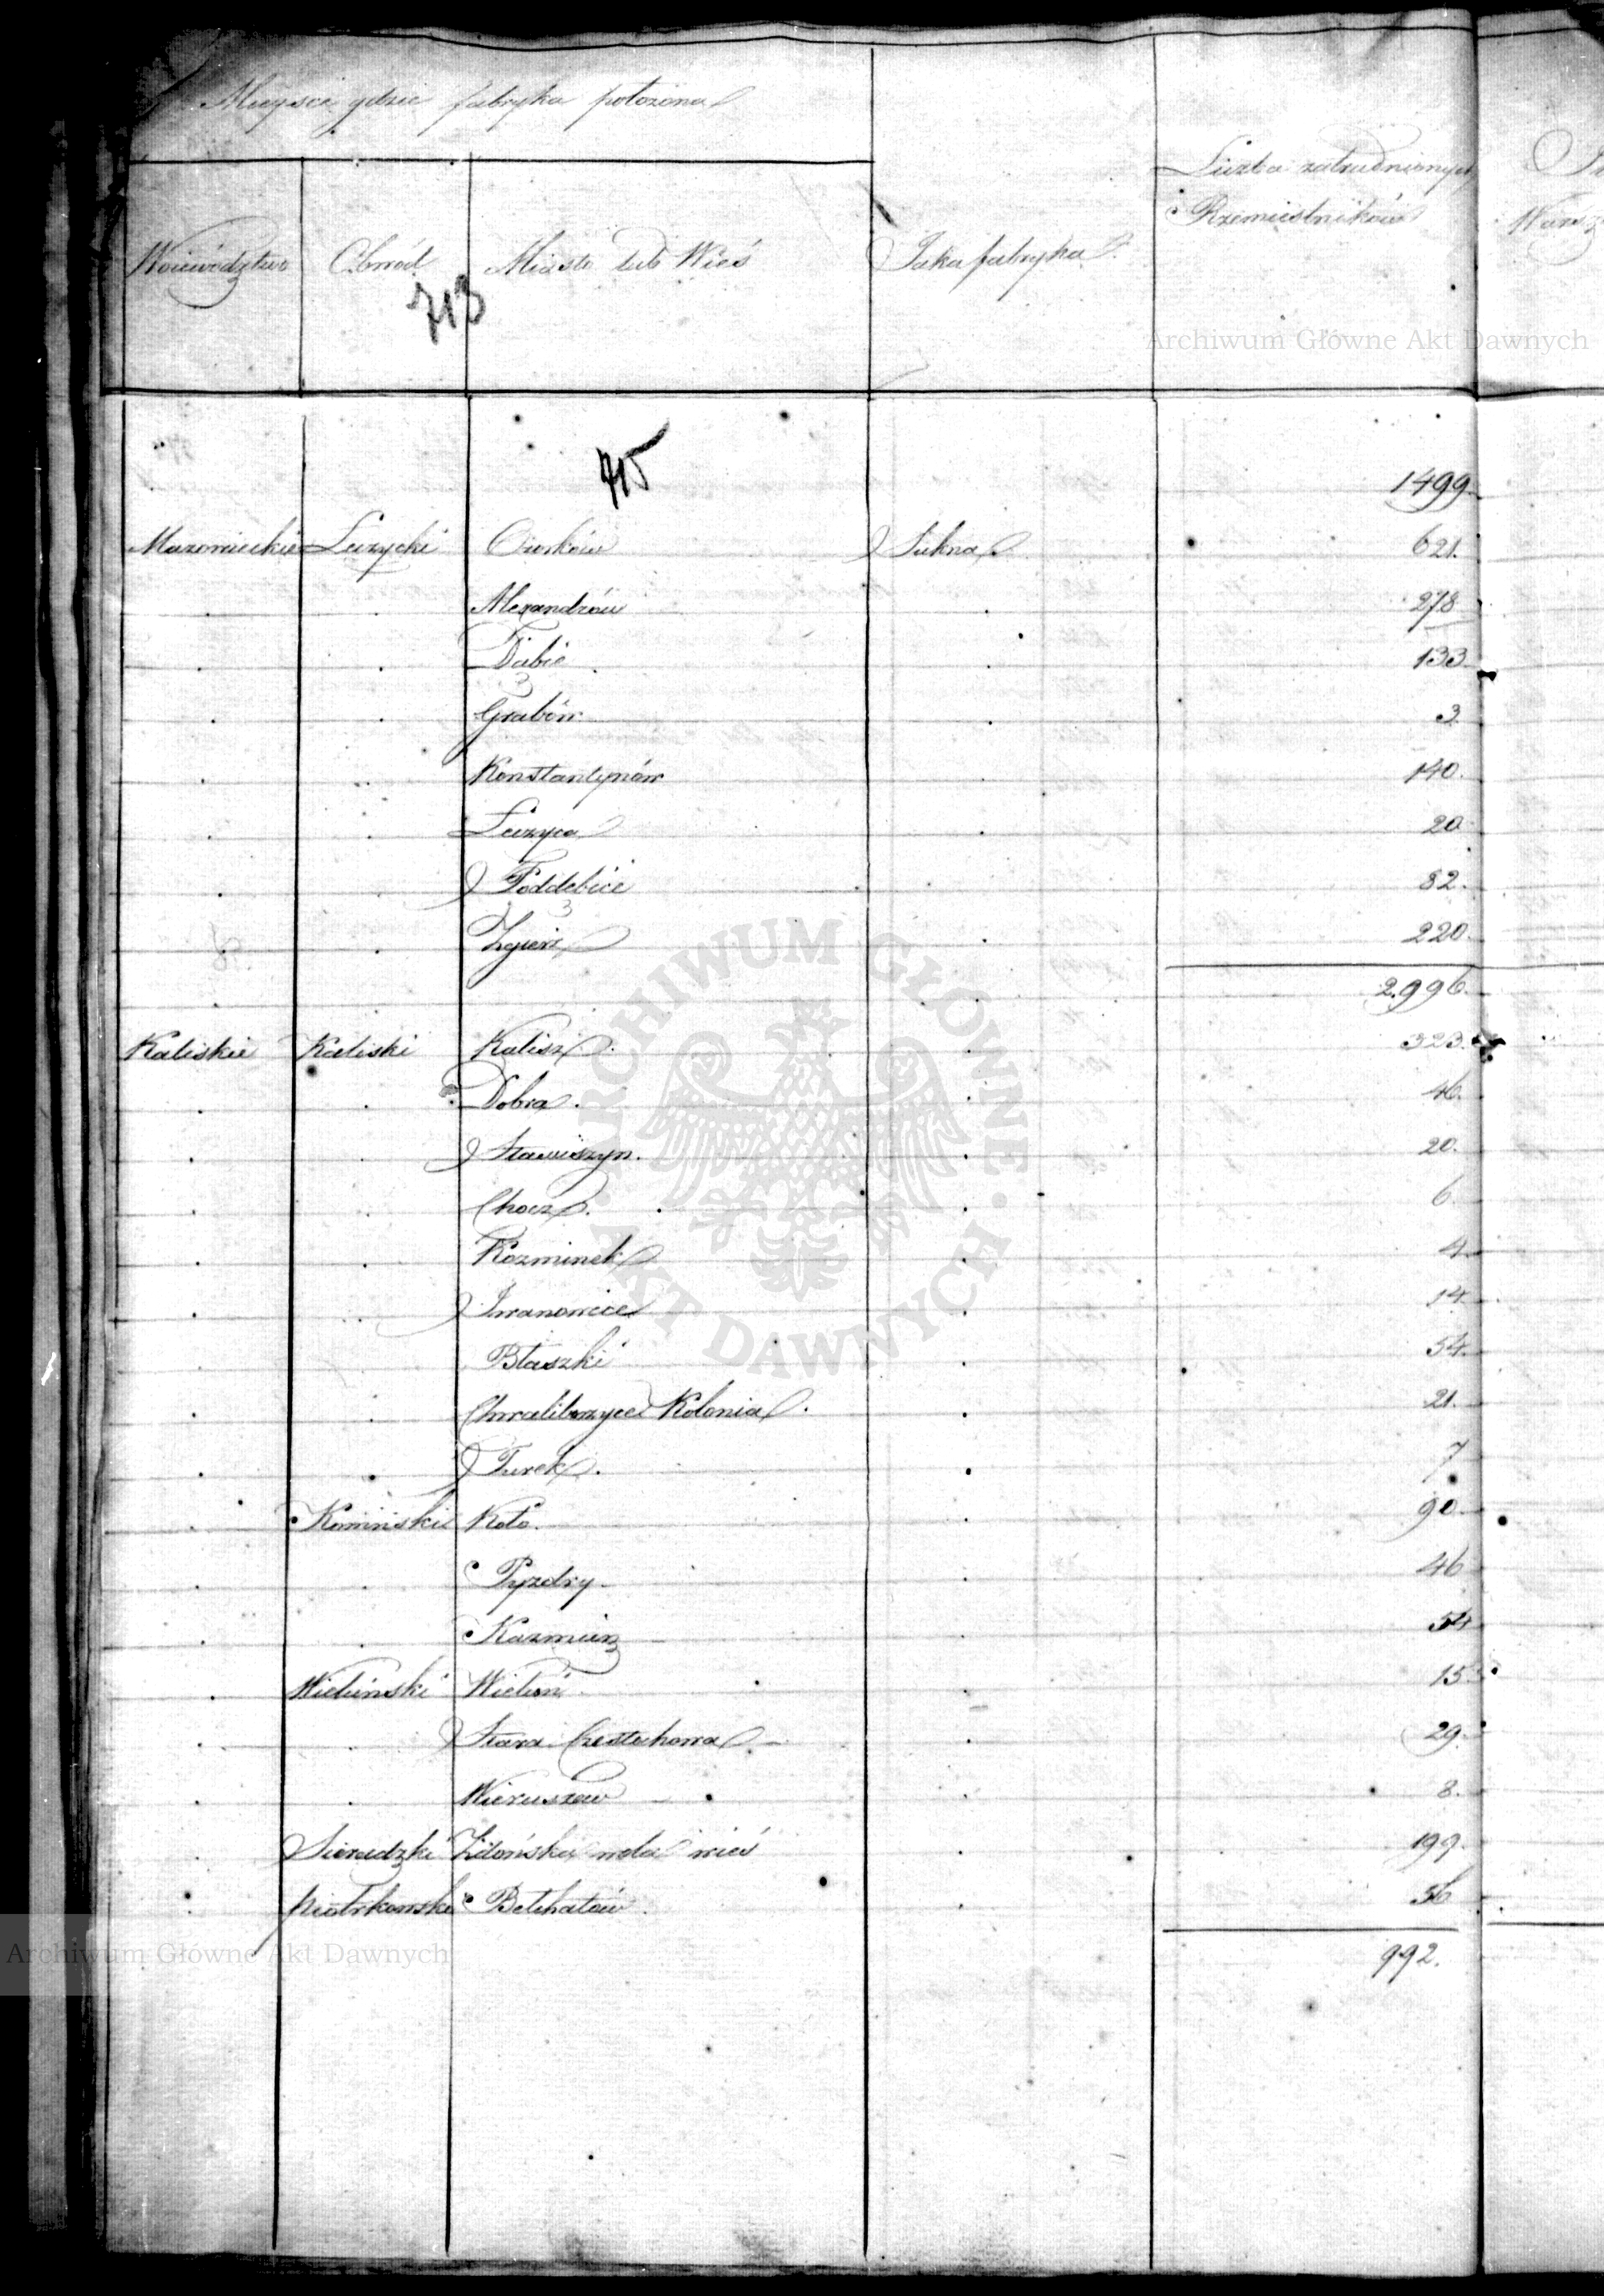 Mieysce gdzie fabryka położona
Liczba zatrudnionych
Rzemieslników
Woiewództwo Obwód Miasto lub Wieś Jaka fabryka
713
Archiwum Główne Akt Dawnych
715
1499
Mazowieckie Łęczycki Ozorków Sukna 621.
Alexandrów 278
Dąbie 133
Grabów 3
Konstantynów 140.
Łęczyca 20
Poddebice 82.
Zgierz 220.
2.996.
Kaliskie Kaliski Kalisz 323.
Dobra. 46.
Stawiszyn. 20.
Chocz. 6.
Kozminek 4
Iwanowice 14
Błaszki 54.
Chwaliborzyce Kolonia. 21.
Turek. 7
Koninski Koło. 90
Pyzdry 46
Kazmierz 54
Wieluński Wieluń 15
Stara Czestochowa 29.
Wieruszow 8.
Sieradzki Zduńska wola wieś 199.
Piotrkowski Bełchatów. 56
992.
ARCHIWUM GŁÓWNE
AKT DAWNYCH
Archiwum Główne Akt Dawnych